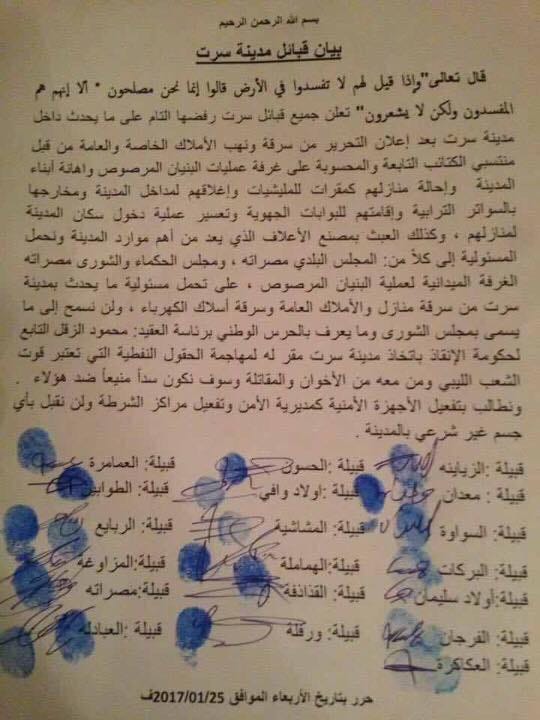 بسم الله الرحمن الرحيم
بيان قبائل مدينة سرت
قال تعالى"وإذا قيل لهم لا تفسدوا في الأرض قالوا إنما نحن مصلحون * ألا إنهم هم
المفسدون ولكن لا يشعرون" تعلن جميع قبائل سرت رفضها التام على ما يحدث داخل
مدينة سرت بعد إعلان التحرير من سرقة ونهب الأملاك الخاصة والعامة من قبل
منتسبي الكتائب التابعة والمحسوبة على غرفة عمليات البنيان المرصوص واهانة أبناء
المدينة وإحالة منازلهم كمقرات للمليشيات وإغلاقهم لمداخل المدينة ومخارجها
بالسواتر الترابية وإقامتهم للبوابات الجهوية وتعسير عملية دخول سكان المدينة
لمنازلهم ، وكذلك العبث بمصنع الأعلاف الذي يعد من أهم موارد المدينة ونحمل
المسئولية إلى كلاً من: المجلس البلدي مصراته ، ومجلس الحكماء والشورى مصراته
الغرفة الميدانية لعملية البنيان المرصوص ، على تحمل مسئولية ما يحدث بمدينة
سرت من سرقة منازل والأملاك العامة وسرقة أسلاك الكهرباء ، ولن نسمح إلى ما
يسمى بمجلس الشورى وما يعرف بالحرس الوطني برئاسة العقيد: محمود الزقل التابع
لحكومة الإنقاذ باتخاذ مدينة سرت مقر له لمهاجمة الحقول النفطية التي تعتبر قوت
الشعب الليبي ومن معه من الأخوان والمقاتلة وسوف نكون سداً منيعاً ضد هؤلاء .
ونطالب بتفعيل الأجهزة الأمنية كمديرية الأمن وتفعيل مراكز الشرطة ولن نقبل بأي
جسم غير شرعي بالمدينة .
قبيلة: الزيانيه قبيلة: الحسون قبيلة: العمامرة
قبيلة : معدان قبيلة :اولاد وافي قبيلة: الطوابير
قبيلة: السواوة قبيلة: المشاشية قبيلة: الربايع
قبيلة: البركات قبيلة: الهماملة قبيلة: المزاوغه
قبيلة:أولاد سليمان قبيلة: القذاذفة قبيلة:مصراته
قبيلة: الفرجان قبيلة : ورفلة قبيلة :العبادله
قبيلة: العكاكرة
حرر بتاريخ الأربعاء الموافق 2017/01/25ف